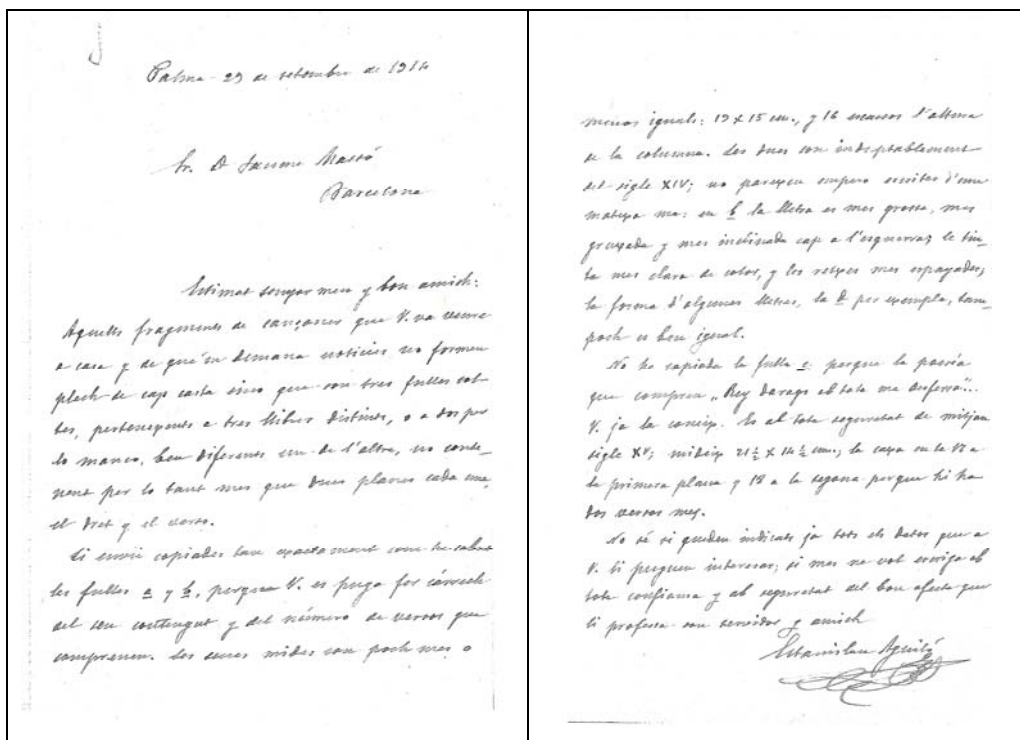 Palma - 29 de setembre de 1914
Sr. D. Jaume Massó
Barcelona
Estimat senyor meu y bon amich:
Aquells fragments de cançons que V. va veure
a casa y de qué'm demana noticies no formen
plech de cap casta sino que son tres fulles sol-
tes, pertenexents a tres llibres distints, o a dos per
lo manco, ben diferents un de l'altre, no conte-
nent per lo tant mes que dues planes cada una,
el dret y el verso.
Li envii copiades tan exactament com he sabut
les fulles a y b, perque V. es puga fer cárrech
del seu contengut y del número de versos que
comprenen. Les seues mides son poch mes o
menos iguals: 19 x 15 cm., y 16 escassos l'altura
de la columna. Les dues son indubtablement
del sigle XIV; no parexen empero escrites d'una
matexa ma: en b la lletra es mes grossa, mes
gruxada y mes inclinada cap a l'esquerra; la tin-
ta mes clara de color, y les retxes mes espayades;
la forma d'algunes lletres, la d per exemple, tam-
poch es ben igual.
No he copiada la fulla c perque la poesía
que compren "Rey darago ab tota ma desferra"...
V. ja la coneix. Es ab tota seguretat de mitjan
sigle XV; mideix 21½ x 14½ cm.; la caxa en te 17 a
la primera plana y 18 a la segona perque hi ha
dos versos mes.
No sé si queden indicats ja tots els datos que a
V. li puguen interesar; si mes ne vol escriga ab
tota confiansa y ab seguretat del bon afecte que
li professa son servidor y amich
Estanislau Aguiló